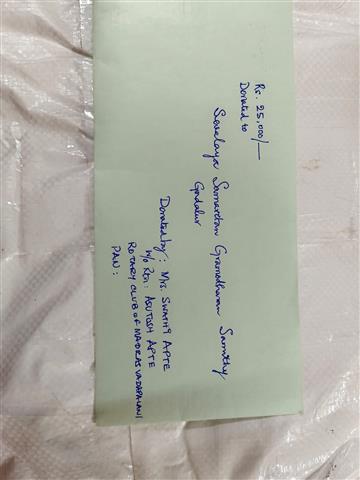 Rs. 25,000/—
Donated to
Sevalaya Samardan Gramodharan Samithy
Gudalur
Donated by: Mrs. SWATHY APTE
w/o Rtn: ASUTOSH APTE
ROTARY CLUB OF MADRAS VADAPALANI
PAN: